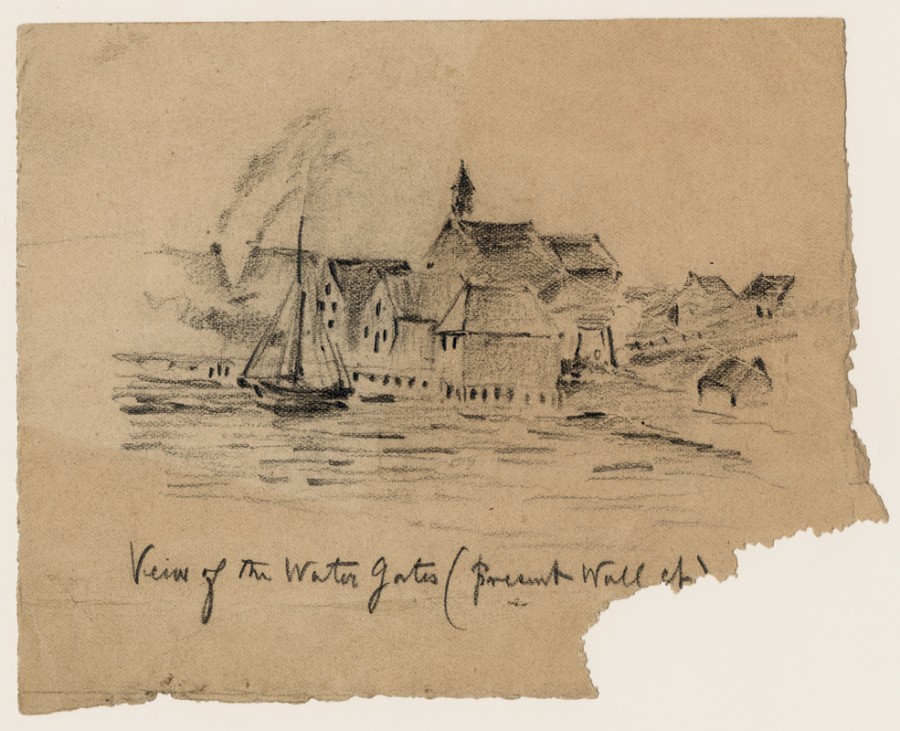 View of the Water Gates (Present Wall st)